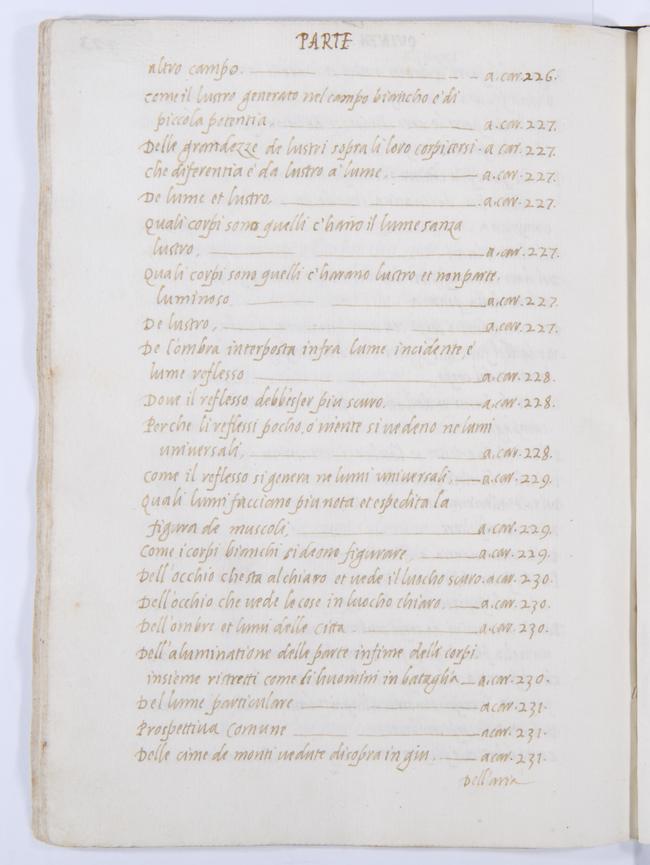 PARTE
altro campo. a.car.226.
come il lustro generato nel campo biancho e di
piccola potentia a.car.227.
Delle grandezze de lustri sopra li loro corpi tersi. a.car.227.
che diferentia e da lustro a lume a.car.227.
De lume et lustro. a.car.227.
Quali corpi sono quelli c'hano il lume sanza
lustro, a.car.227.
Quali corpi sono quelli c'harano lustro et non parte
luminoso a.car.227.
De lustro, a.car.227.
De l'ombra interposta infra lume incidente, e
lume reflesso a.car.228.
Dove il reflesso debb'esser piu scuro. a.car.228.
Perche li reflessi pocho, o niente si vedeno ne lumi
universali, a.car.228.
come il reflesso si genera ne lumi universali, a.car.229.
Quali lumi facciano piu nota et espedita la
figura de muscoli, a.car.229.
Come i corpi bianchi si deono figurare a.car.229.
Dell'occhio che sta al chiaro et vede il luocho scuro. a.car.230.
Dell'occhio che vede le cose in luocho chiaro. a.car.230.
Dell'ombre et lumi delle citta a.car.230.
Dell'aluminatione delle parte infime delli corpi
insieme ristretti come li huomini in bataglia a.car.230.
Del lume particulare a.car.231.
Prospettiva comune a.car.231.
Delle cime de monti vedute disopra in giu. a.car.231.
Dell'aria